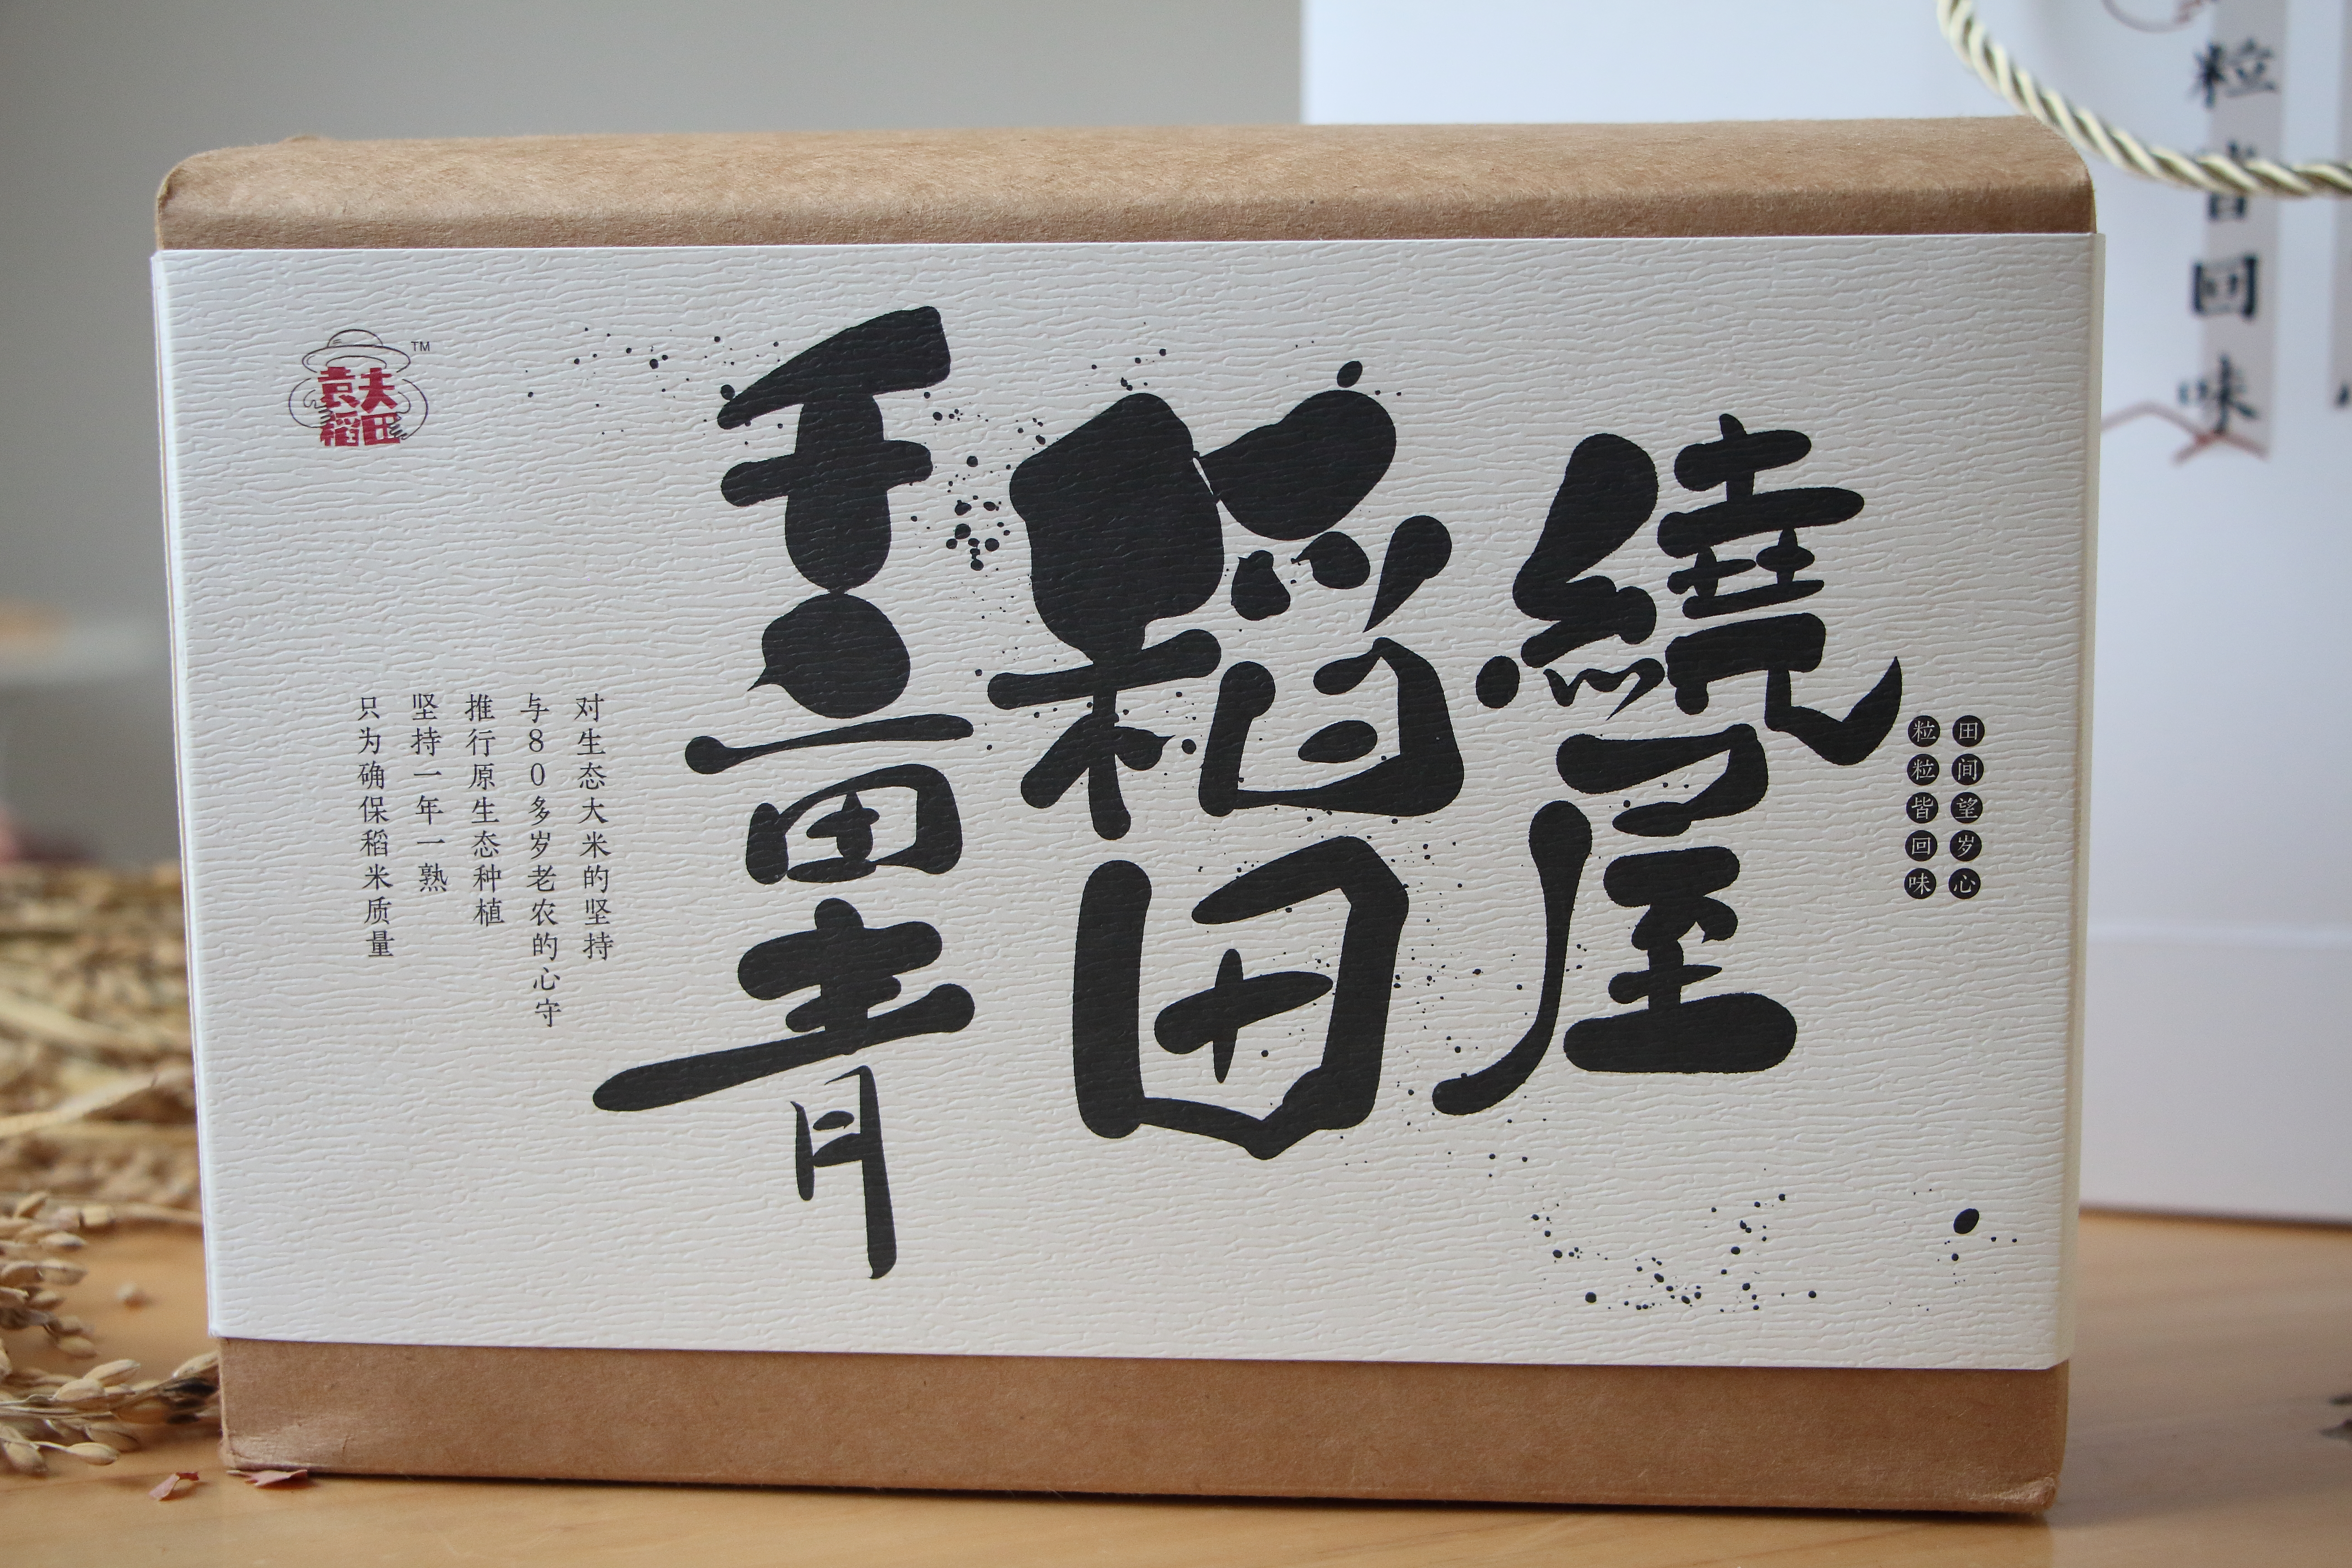 田间望岁心
粒粒皆回味
繞屋
稻田
千亩青
对生态大米的坚持
与80多岁老农的心守
推行原生态种植
坚持一年一熟
只为确保稻米质量
袁夫
稻田
TM
粒皆回味